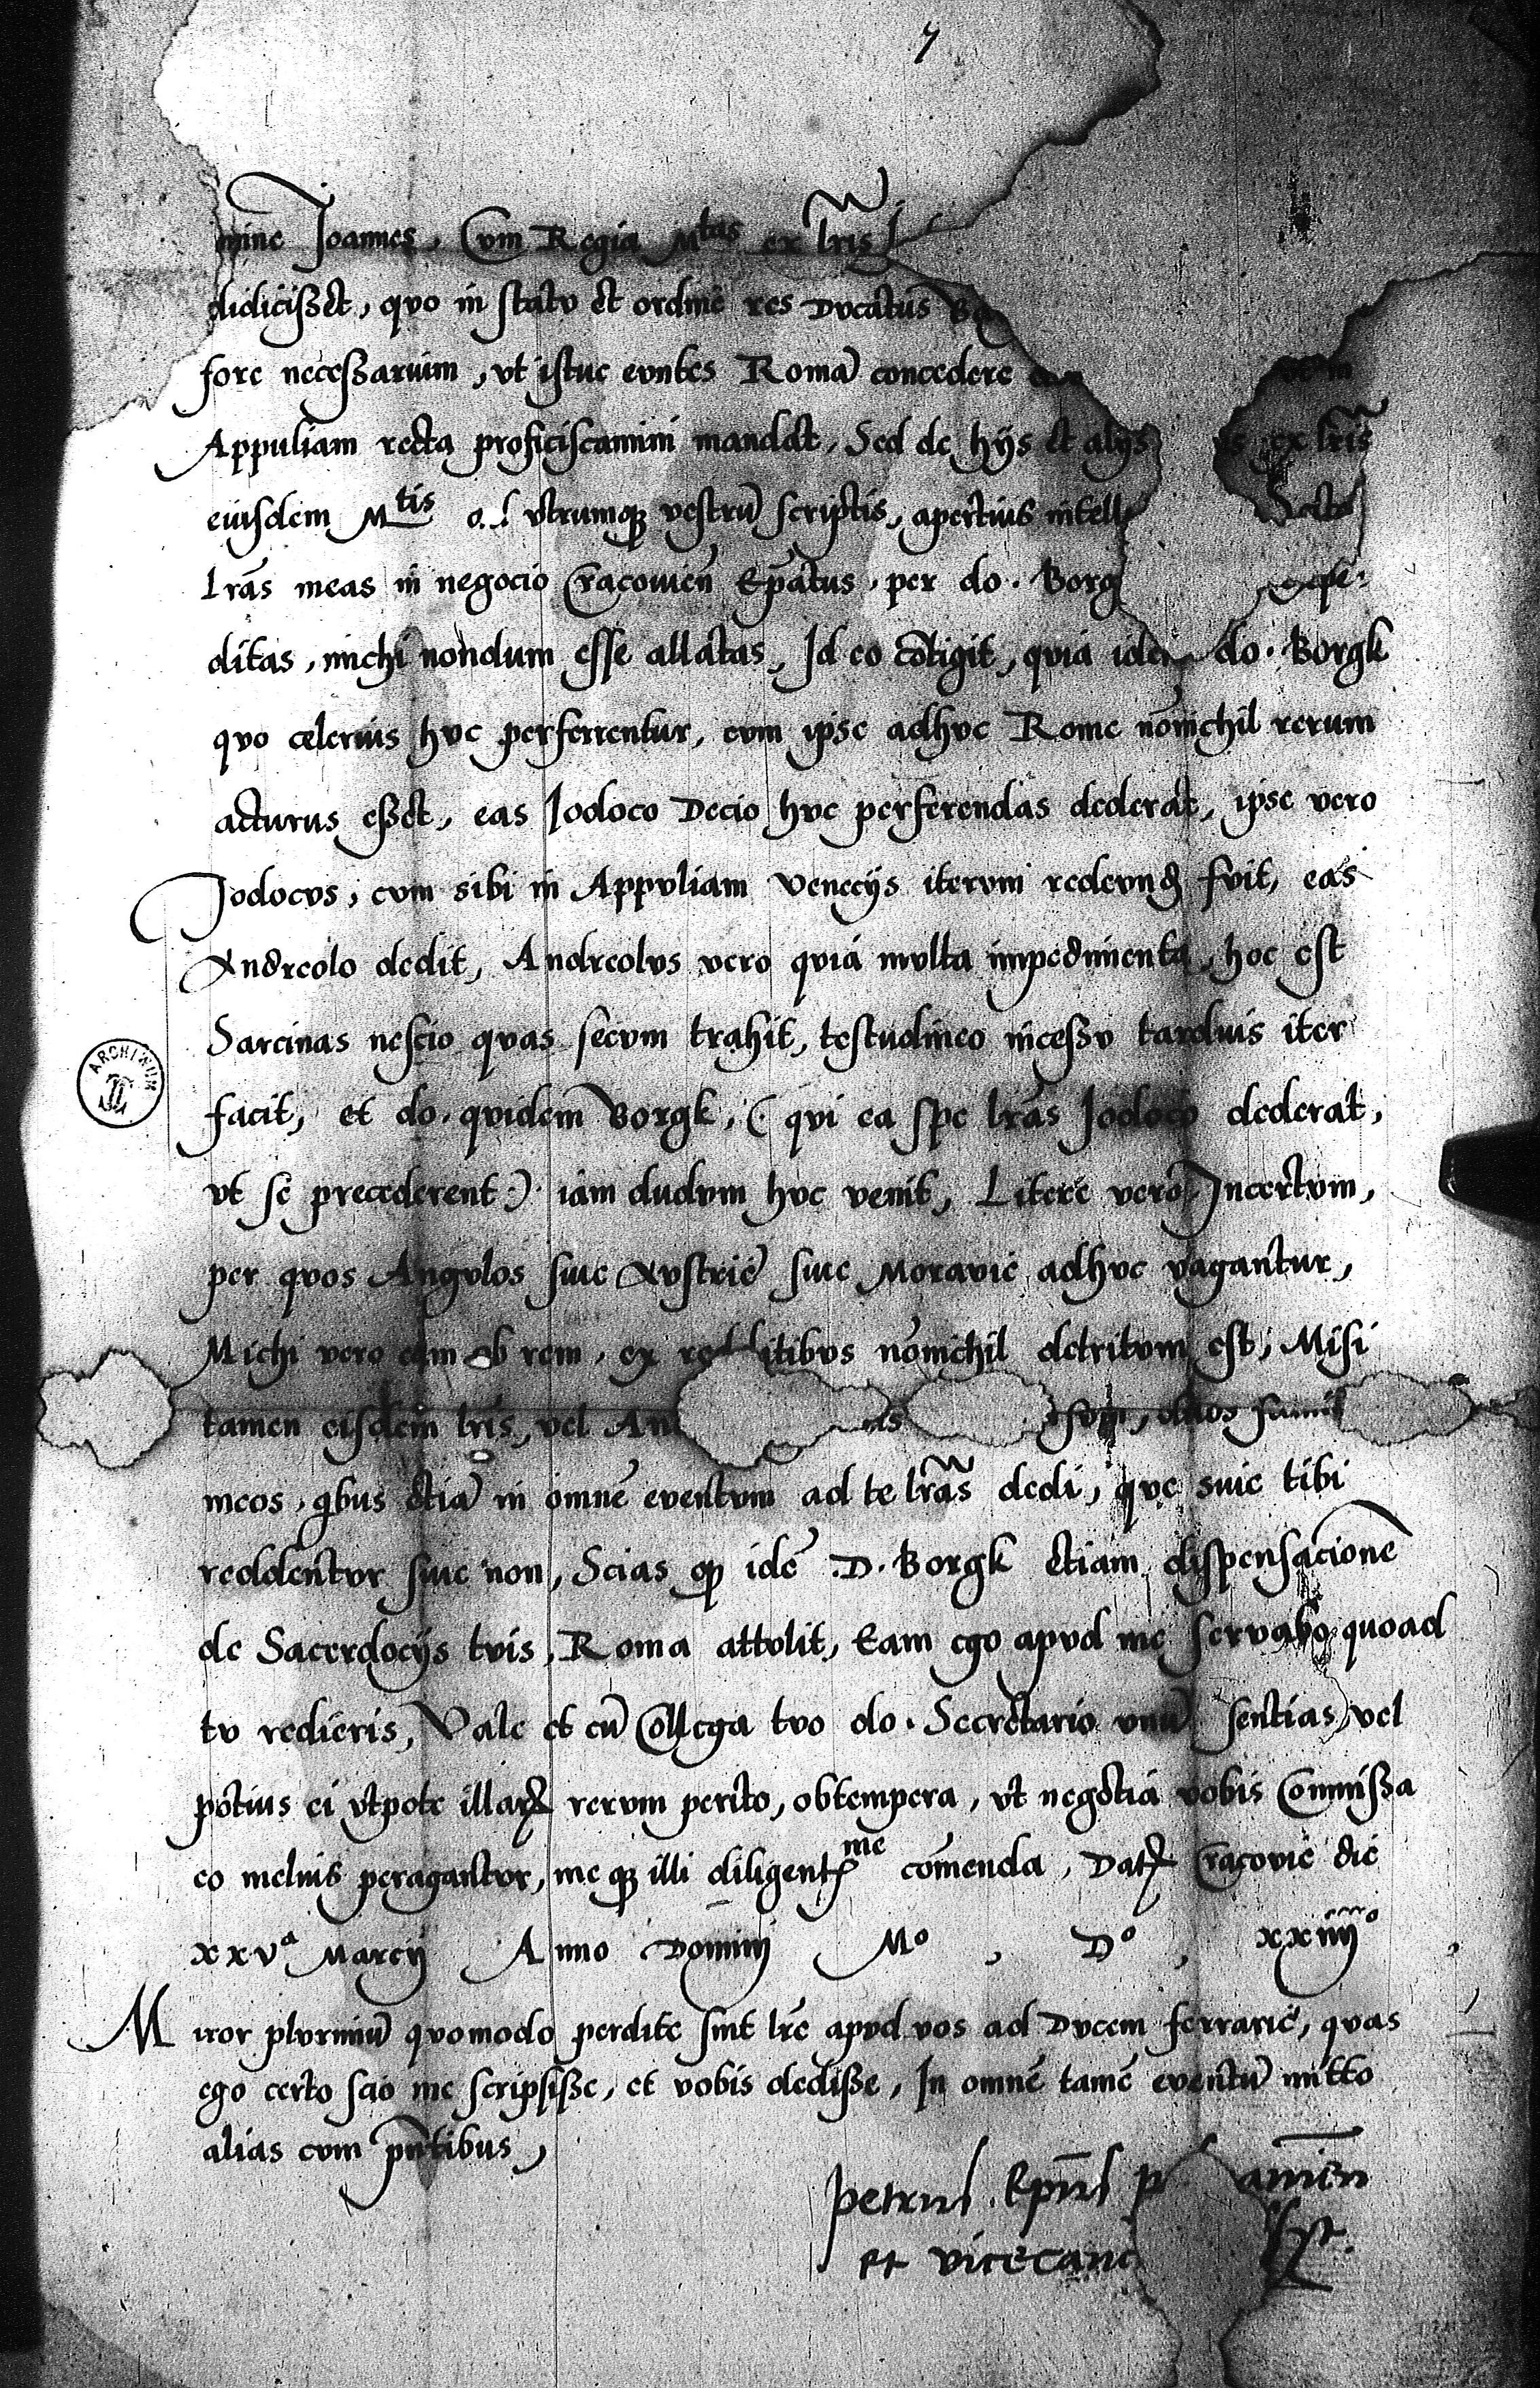 7
mine Joannes, Cum Regia Mtas ex lris
didicisset, quo in statu et ordine res Ducatus Ba
fore necessarium, ut istuc euntes Romā concedere
Appuliam recta proficiscamini mandat, Sed de hijs et alijs ex lris
eiusdem Mtis ad utrumq vestrū scriptis, apertius intell
lrās meas in negocio Cracovień Ep̄atus, per do. Borg expe:
ditas, michi nondum esse allatas, Id eo cōtigit, quia idem do. Borgk
quo celerius huc perferrentur, cum ipse adhuc Rome nōnichil rerum
acturus esset, eas Jodoco Decio huc perferendas dederat, ipse vero
Jodocus, cum sibi in Appuliam Venecijs iterum redeund fuit, eas
Andreolo dedit, Andreolus vero quia multa impedimenta, hoc est
Sarcinas nescio quas secum trahit, testudineo incessu tardius iter
facit, et do. quidem Borgk, (qui ea spe lrās Jodoco dederat,
ut se precederent) iam dudum huc venit, Litere vero Incertum,
per quos Angulos sive Austrie sive Moravie adhuc vagantur,
Michi vero eam ob rem, ex redditibus nōnichil detritum est, Misi
tamen eisdem lris, vel An duos
meos, qbus etiā in omnē eventum ad te lrās dedi, que sive tibi
reddentur sive non, Scias qp idē .D. Borgk etiam dispensacionē
de Sacerdocijs tuis, Roma attulit, Eam ego apud me servabo quoad
tu redieris, Vale et cū Collega tuo do. Secretario unū sentias, vel
potius ei utpote illarꝝ rerum perito, obtempera, ut negotia vobis Commissa
eo melius peragantur, me qꝫ illi diligentme comenda, Datꝝ Cracovie die
xxva Marcij Anno Dominj Mo, Do, xxiiijo
Miror plurimū quomodo perdite sint lrē apud vos ad Ducem ferrarie, quas
ego certo scio me scripsisse, et vobis dedisse, In omnē tamē eventū mitto
alias cum pn̄tibus,
Petrus Ep̄us p amień
et vicecanc
ARCHIWUM